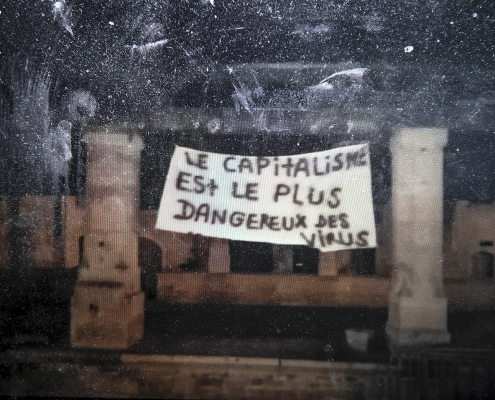 LE CAPITALISME
EST LE PLUS
DANGEREUX DES
VIRUS